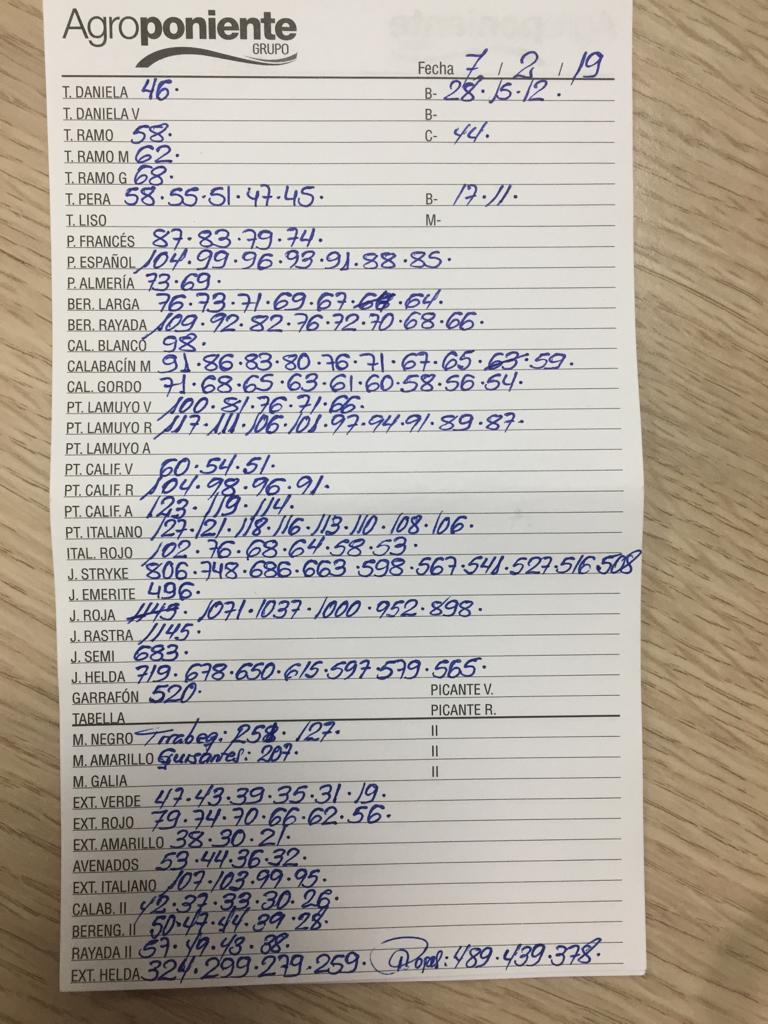 Agroponiente
GRUPO
Fecha 7 / 2 / 19
T. DANIELA 46. B- 28.15.12.
T. DANIELA V B-
T. RAMO 58. C- 44.
T. RAMO M 62.
T. RAMO G 68.
T. PERA 58.55.51.47.45. B- 17.11.
T. LISO M-
P. FRANCÉS 87.83.79.74.
P. ESPAÑOL 104.99.96.93.91.88.85.
P. ALMERÍA 73.69.
BER. LARGA 76.73.71.69.67.64.
BER. RAYADA 109.92.82.76.72.70.68.66.
CAL. BLANCO 98.
CALABACÍN M 91.86.83.80.76.71.67.65.63.59.
CAL. GORDO 71.68.65.63.61.60.58.56.54.
PT. LAMUYO V 100.81.76.71.66.
PT. LAMUYO R 117.111.106.101.97.94.91.89.87.
PT. LAMUYO A
PT. CALIF. V 60.54.51.
PT. CALIF. R 104.98.96.91.
PT. CALIF. A 123.119.114.
PT. ITALIANO 127.121.118.116.113.110.108.106.
ITAL. ROJO 102.76.68.64.58.53.
J. STRYKE 806.748.686.663.598.567.541.527.516.508
J. EMERITE 496.
J. ROJA 1145. 1071.1037.1000.952.898.
J. RASTRA 1145.
J. SEMI 683.
J. HELDA 719.678.650.615.597.579.565.
GARRAFÓN 520. PICANTE V.
TABELLA PICANTE R.
M. NEGRO Tirabeq: 251. 127. II
M. AMARILLO Guisantes: 207. II
M. GALIA II
EXT. VERDE 47.43.39.35.31.19.
EXT. ROJO 79.74.70.66.62.56.
EXT. AMARILLO 38.30.21.
AVENADOS 53.44.36.32.
EXT. ITALIANO 107.103.99.95.
CALAB. II 42.37.33.30.26.
BERENG. II 50.47.44.39.28.
RAYADA II 57.49.43.38.
EXT. HELDA 324.299.279.259. 489.439.378.